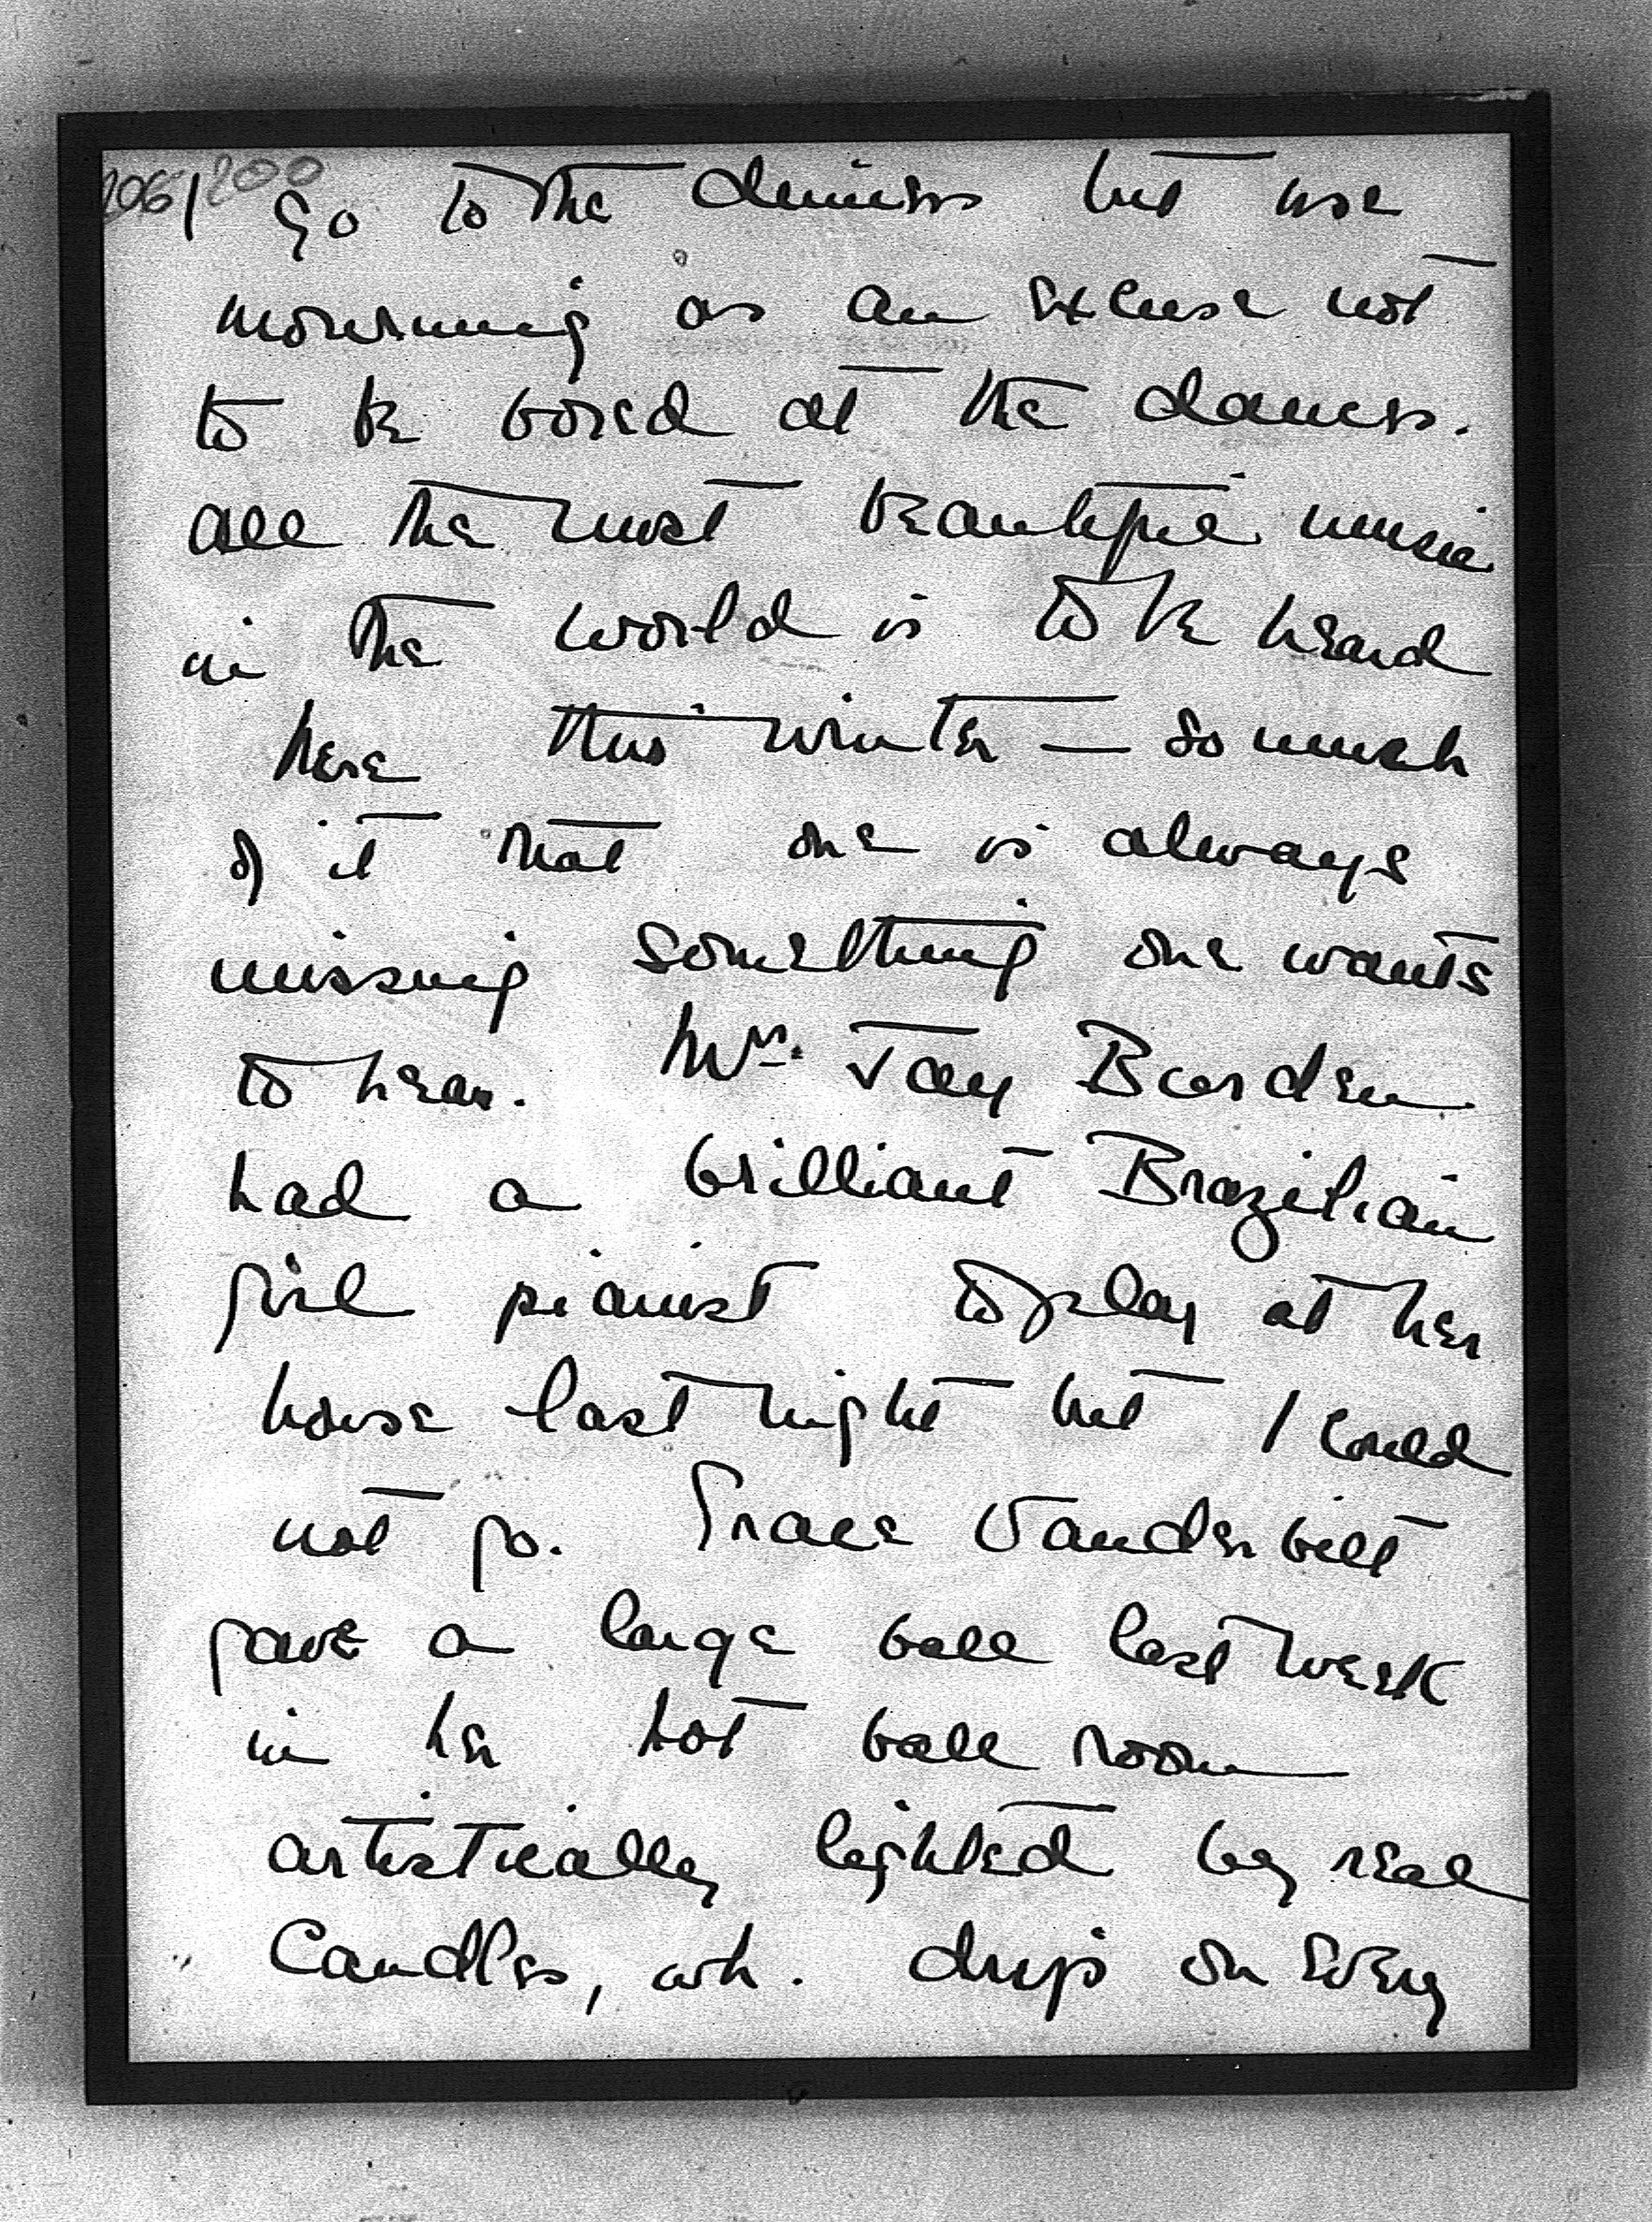 206 200
I go to the dinners but use
mourning as an excuse not
to be bored at the dances.
all the most beautiful music
in the world is to be heard
here this winter — so much
of it that one is always
missing something one wants
to hear. Mrs. Jay Borden
had a brilliant Brazilian
girl pianist to play at her
house last night but I could
not go. Grace Vanderbilt
gave a large ball last week
in her hot ball room
artistically lighted by real
Candles, wh. drip on every